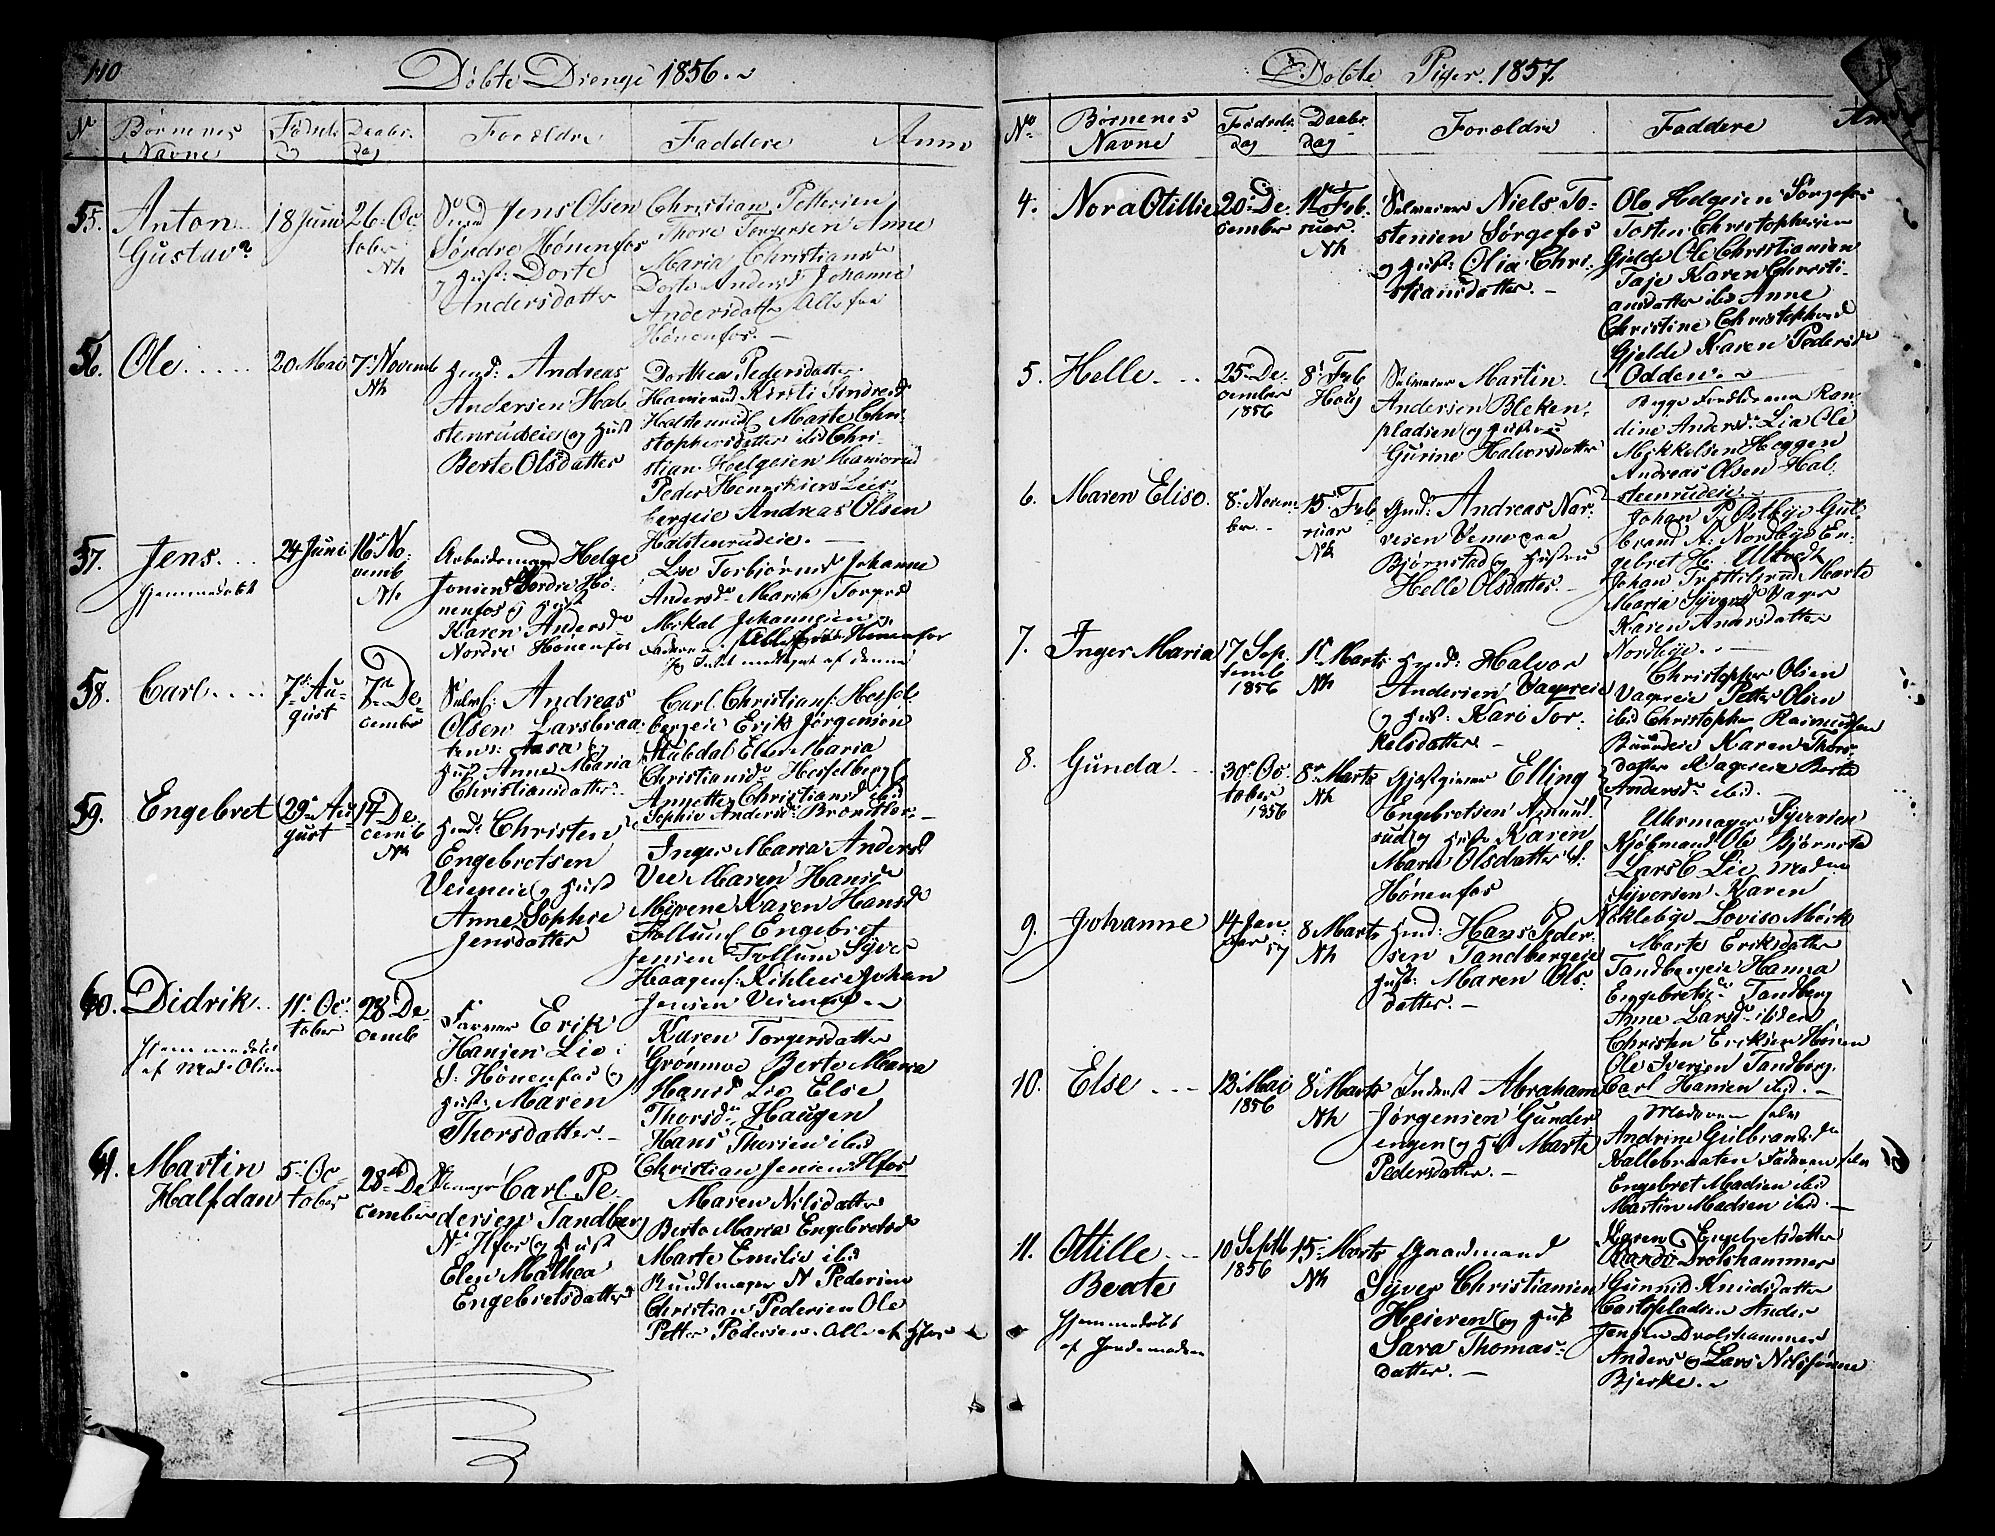 110
Døbte Drenge 1856.
No
Børnenes Navne
Fødsels Dag
Daabs Dag
Forældre
Faddere
Anm
55.
Anton
Gustav
18 Juni
26 Oc-
tober
Nk
Jens Olsen
Søndre Hønenfos
og Hust: Dorte
Andersdatter
Christian Pettersen
Thore Torgersen Anne
Maria Christians
Dorte Anders Johanne
Andersdatter Alle fra
Hønenfos.
56.
Ole
20 Mai
7 Novemb
Nk
Husd: Andreas
Andersen Hal-
stenrudeie og Hust
Berte Olsdatter
Dorthea Pedersdatter
Kirsti
Halstenrud Marte Chri-
stophersdatter ibid Chri-
stian Helgesen
Peder Henriksen
bergeie Andreas Olsen
Halstenrudeie.
57.
Jens
Hjemmedøbt
24 Juni
16 No-
vemb
Nk
Arbeidsmand Helge
Jonsen Søndre Hø-
nenfos og Hust
Karen Anders
Nordre Hønenfos
Lise Torbjørns Johanne
Anders Maria Torgers
Mikal Johannesen
Faderen Alle fra Hønenfos
58.
Carl
7 Au-
gust
7 De-
cember
Selvei: Andreas
Olsen Larsbraa-
ten: Aasa og
Hust Anne Maria
Christiansdatter
Carl Christians: Hessel-
bergeie Erik Jørgensen
Stubdal Else Maria
Christiansd Hesselberg
Annette Christiansd ibid
Sophie Anders
59.
Engebret
29 Au-
gust
14 De-
cemb
Nk
Husd: Christen
Engebretsen
Veimeie og Hust
Anne Sophie
Jensdatter
Inger Maria Anders
Vee Maren Hans
Karen Hansd
Follum Engebret
Jensen Follum Syver
Haagens: Kihleeie Johan
Jensen
60.
Didrik
Hjemmedøbt
af Mad: Olsen
11 Oc-
tober
28 De-
cemb
Farver Erik
Hansen Lie
S: Hønenfos og
Hust: Maren
Thorsdatter
Karen Torgersdatter
Grønmoe Berte Maria
Hans Lie Else
Thorsd Haugen
Hans Thorsen ibid
Christian Jensen Hfos
61.
Martin
Halfdan
5 Oc-
tober
28 De-
cember
Carl Pe-
dersen Tandberg
N Hfos og Hust
Elen Mathea
Engebretsdatter
Maren Nilsdatter
Berte Maria Engebretsd
Marte Emilie ibid
Bundtmager N Pedersen
Christian Pedersen Ole
Petter Pedersen. Alle af Hfos
Døbte Piger. 1857.
No
Børnenes Navne
Fødsels Dag
Daabs Dag
Forældre
Faddere
Anm
4.
Nora Otillie
20 De-
cember
1 Feb-
ruar.
Nk
Selveier Niels To-
stensen Sørgefos
og Hust: Olia Chri-
stiansdatter.
Ole Helgesen Sørgefos
Tosten Christophersen
Gjelde Ole Christiansen
Taje Karen Christi-
ansdatter ibid Anne
Christine Christophersd
Gjelde Karen Pedersd
Odden.
5.
Helle
25 De-
cember
1856
8 Feb
Houg
Selveier Martin
Andersen Bleken-
pladsen og Hustru
Gurine Halvorsdatter
Begge Forældrene Ran-
dine Anders: Lia Ole
Mikkelsen Heggen
Andreas Olsen Hal-
steenrudeie.
6.
Maren Elise
8 Novem-
ber.
15 Feb-
ruar
Nk
Husd: Andreas Nar-
vesen Veme paa
Bjørnstad og Hustru
Helle Olsdatter.
Johan P Østbye Gul-
brand A: Nordbye En-
gebret H: Ultvedt
Johan Marte
Maria Syvers Vager
Karen Andersdatter
Nordbye.
7.
Inger Maria
17 Sep-
temb
1856
1 Marts
Nk
Husd: Halvor
Andersen Vagereie
og Hust: Kari Tor-
kelsdatter
Christopher Olsen
Vagereie Petter Olsen
ibid Christopher Rasmussen
Karen Thors-
datter Vagereie Berte
Anders ibid.
8.
Gunda
30 Oc-
tober
1856
8 Marts
Nk
Gjæstgiver Elling
Engebretsen Asmund-
rud og Hust: Karen
Marie Olsdatter S:
Hønenfos
Uhrmager Syversen
Kjøbmand Ole Bjørnstad
Lars C Lie Madm
Syversen Karen
Nøklebye Lovise Mørk
9.
Johanne
14 Jan-
uar 57
8 Marts
Nk
Husd: Hans Peder-
sen Tandbergeie
Hust: Maren Ols-
datter.
Marte Eriksdatter
Tandbergeie Hanna
Engebretsd Tandberg
Anne Larsd ibiden
Christen Eriksen Hønen
Ole Iversen Tandberg
Carl Hansen ibid.
10.
Else
13 Mai
1856
8 Marts
Nk
Inderst Abraham
Jørgensen Gunder-
engen og Hst Marte
Pedersdatter.
Moderen selv
Andrine Gulbrandsd
Kallebraaten Faderen selv
Engebret Madsen ibid
Martin Madsen ibid.
11.
Ottille
Beate
Hjemmedøbt
af Jordemoderen
10 Septb
1856
15 Marts
Nk
Gaardmand
Syver Christiansen
Heieren og Hust
Sara Thomas-
datter.
Karen Engebretsdatter
Drolshammer
Gunnild Knudsdatter
Anders
Jensen Drolshammer
Anders og Lars Nilssønne
Bjerke.